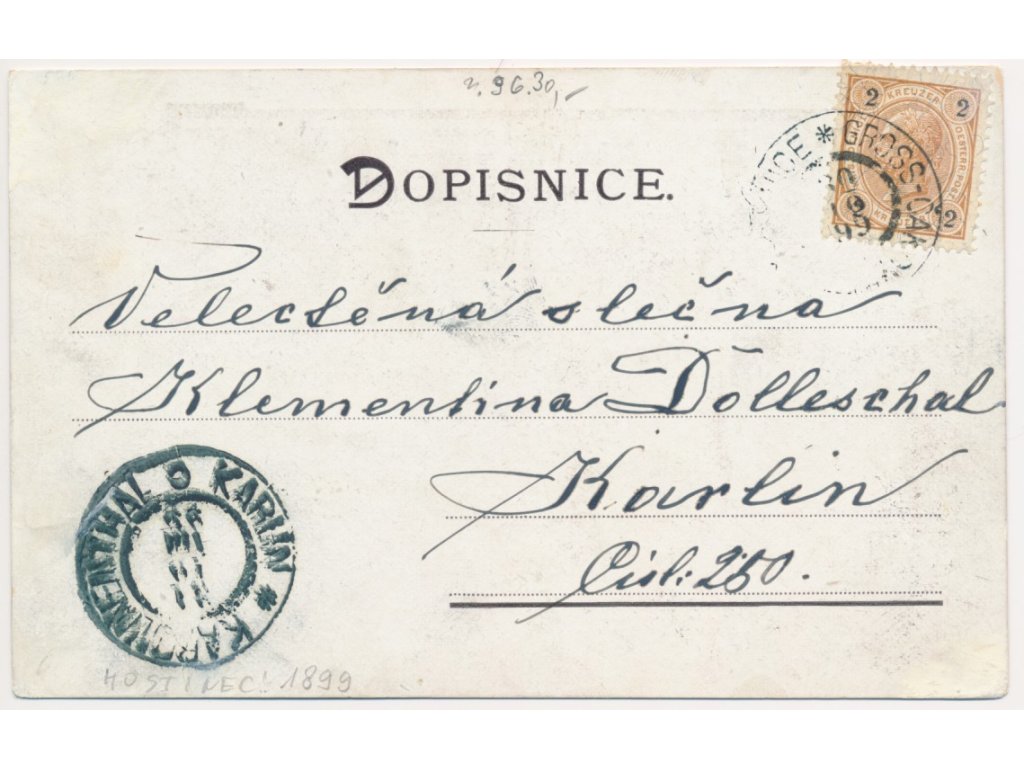 r. 96.30,-
DOPISNICE.
2 KREUZER 2
OESTERR. POST
2
* GROSS-
99
Velectěná slečna
Klementina Dölleschal
Karlín
Čísl: 250.
KAROLINENTHAL O KARLIN *
HOSTINEC! 1899